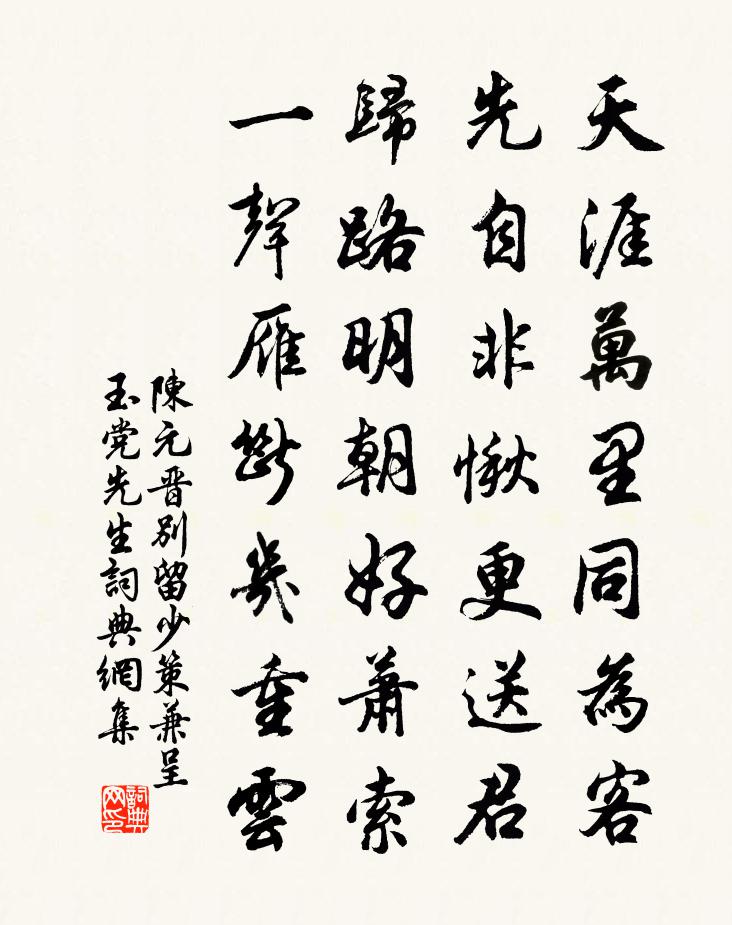 天涯萬里同為客
先自非愀更送君
歸路明朝好蕭索
一聲雁斷幾重雲
陳元晋別留少策兼呈
玉党先生詞典網集
詞典
网印